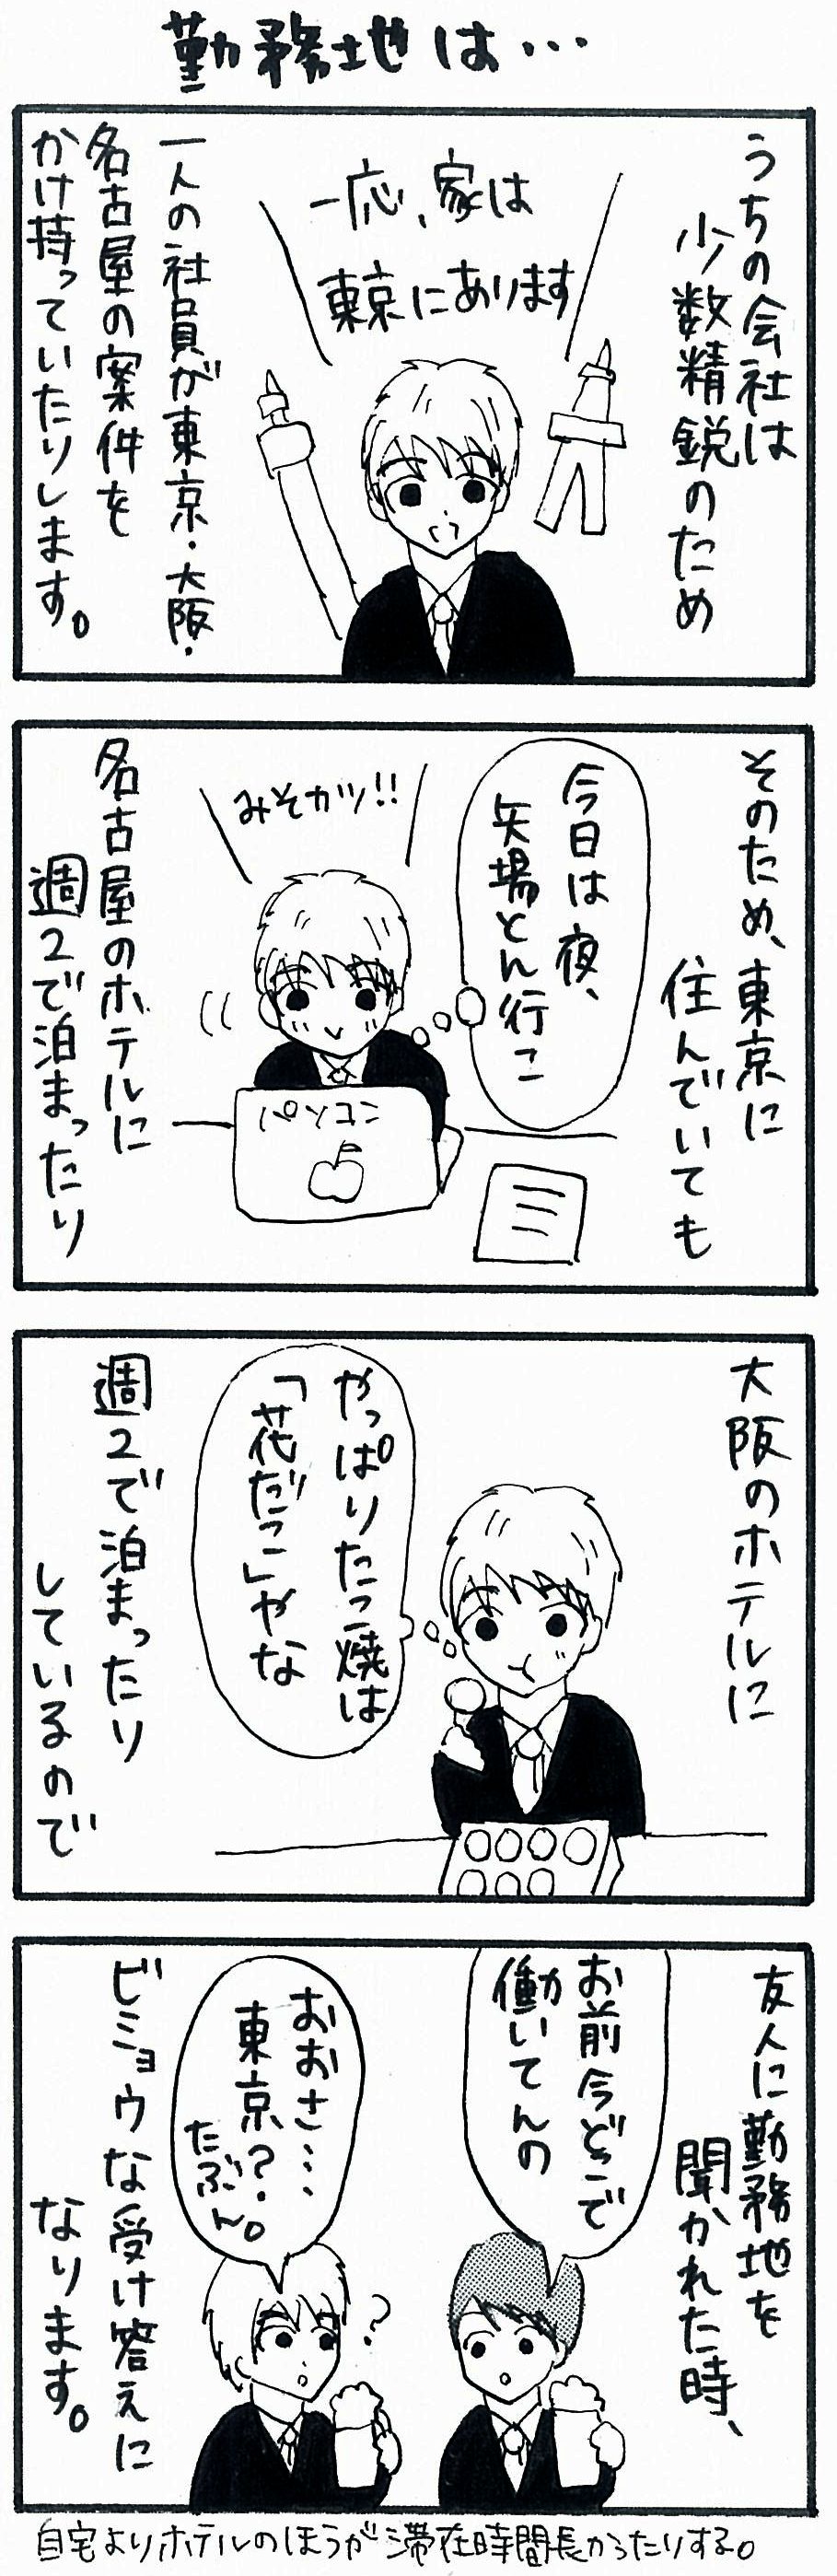 勤務地は…
うちの会社は
少数精鋭のため
一応、家は
東京にあります
一人の社員が東京・大阪・
名古屋の案件を
かけ持っていたりします。
そのため、東京に
住んでいても
今日は夜、
矢場とん行こ
みそカツ!!
パソコン
名古屋のホテルに
週2で泊まったり
大阪のホテルに
やっぱりたこ焼は
「花だこ」やな
週2で泊まったり
しているので
友人に勤務地を
聞かれた時、
お前今どこで
働いてんの
おおさ…
東京?・
たぶん。
?
ビミョウな受け答えに
なります。
自宅よりホテルのほうが滞在時間長かったりする。